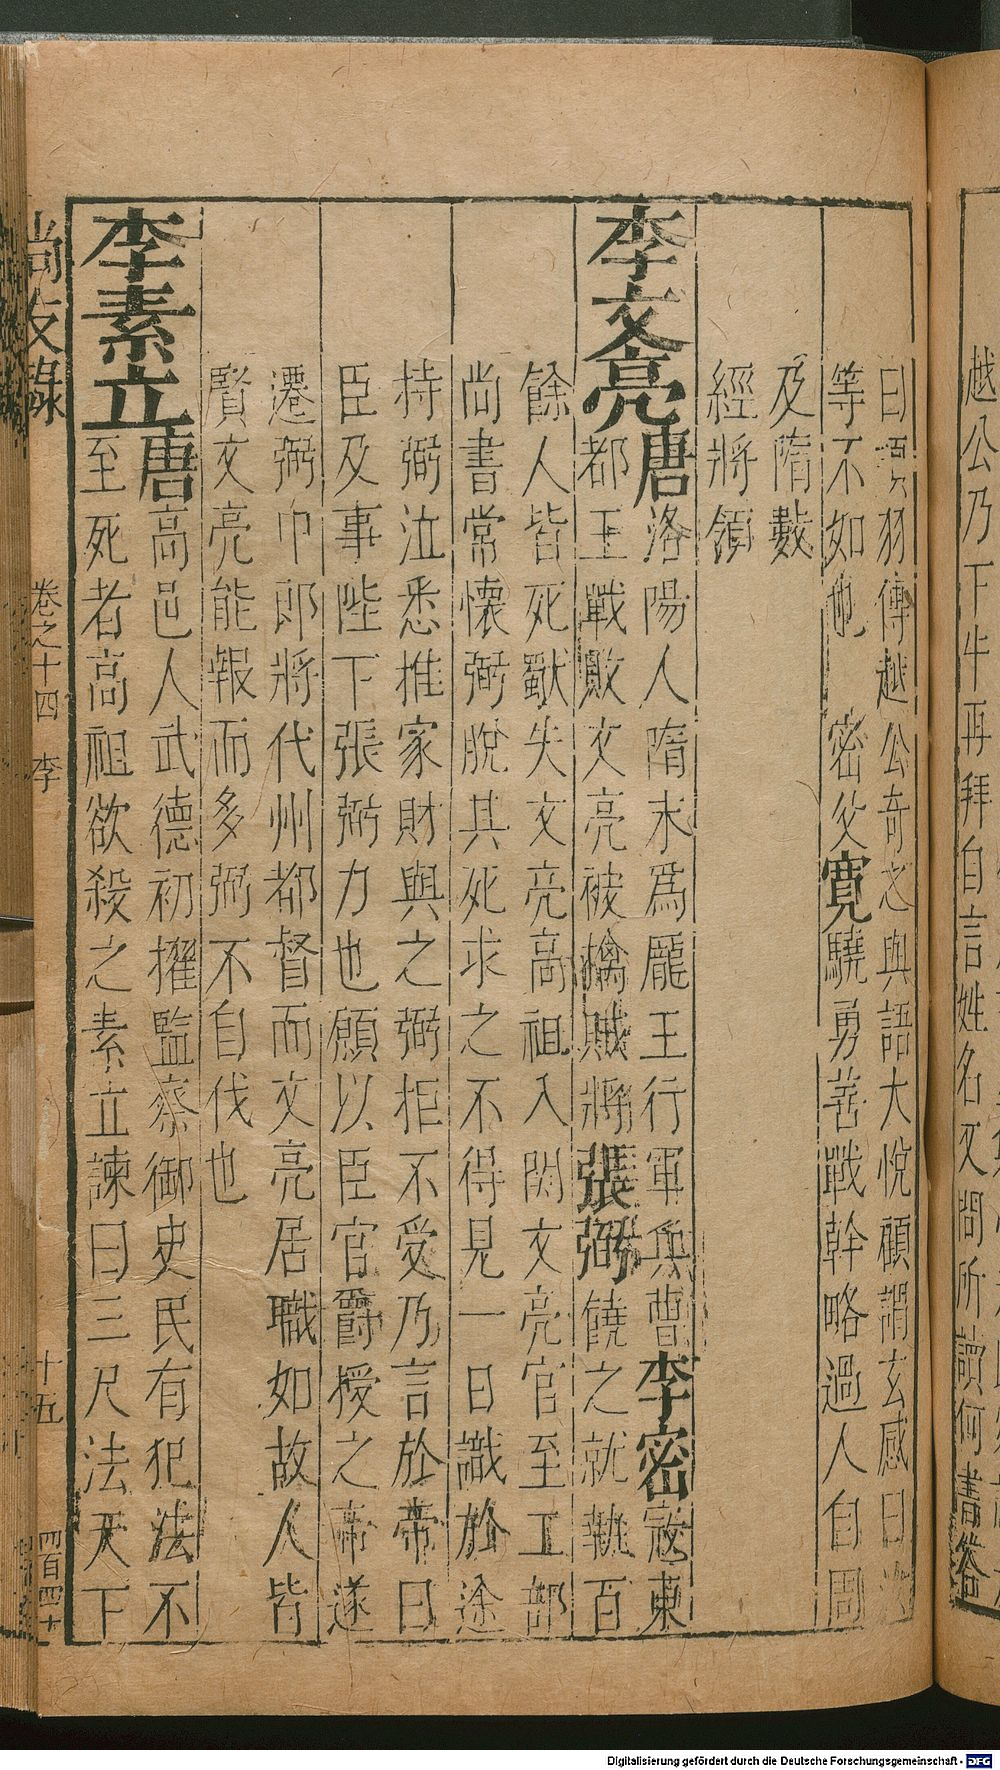 越公乃下牛再拜自言姓名又問所讀何書答
曰項羽傳越公奇之與語大悅顧謂玄感曰汝
等不如也 密父寬驍勇善戰幹略過人自周
及隋數
經將領
李文亮唐洛陽人隋末爲龐玉行軍兵曹李密寇東
都王戰敗文亮被擒賊將張弼饒之就執百
餘人皆死獸失文亮高祖入関文亮官至工部
尚書常懷弼脫其死求之不得見一日識於途
持弼泣悉推家財與之弼拒不受乃言於帝曰
臣及事陛下張弼力也願以臣官爵授之帝遂
遷弼巾郎將代州都督而文亮居職如故人皆
賢文亮能報而多弼不自伐也
李素立唐高邑人武德初擢監察御史民有犯法不
至死者高祖欲殺之素立諫曰三尺法天下
尚友錄 卷之十四 李 十五 四百四十
Digitalisierung gefördert durch die Deutsche Forschungsgemeinschaft - DFG